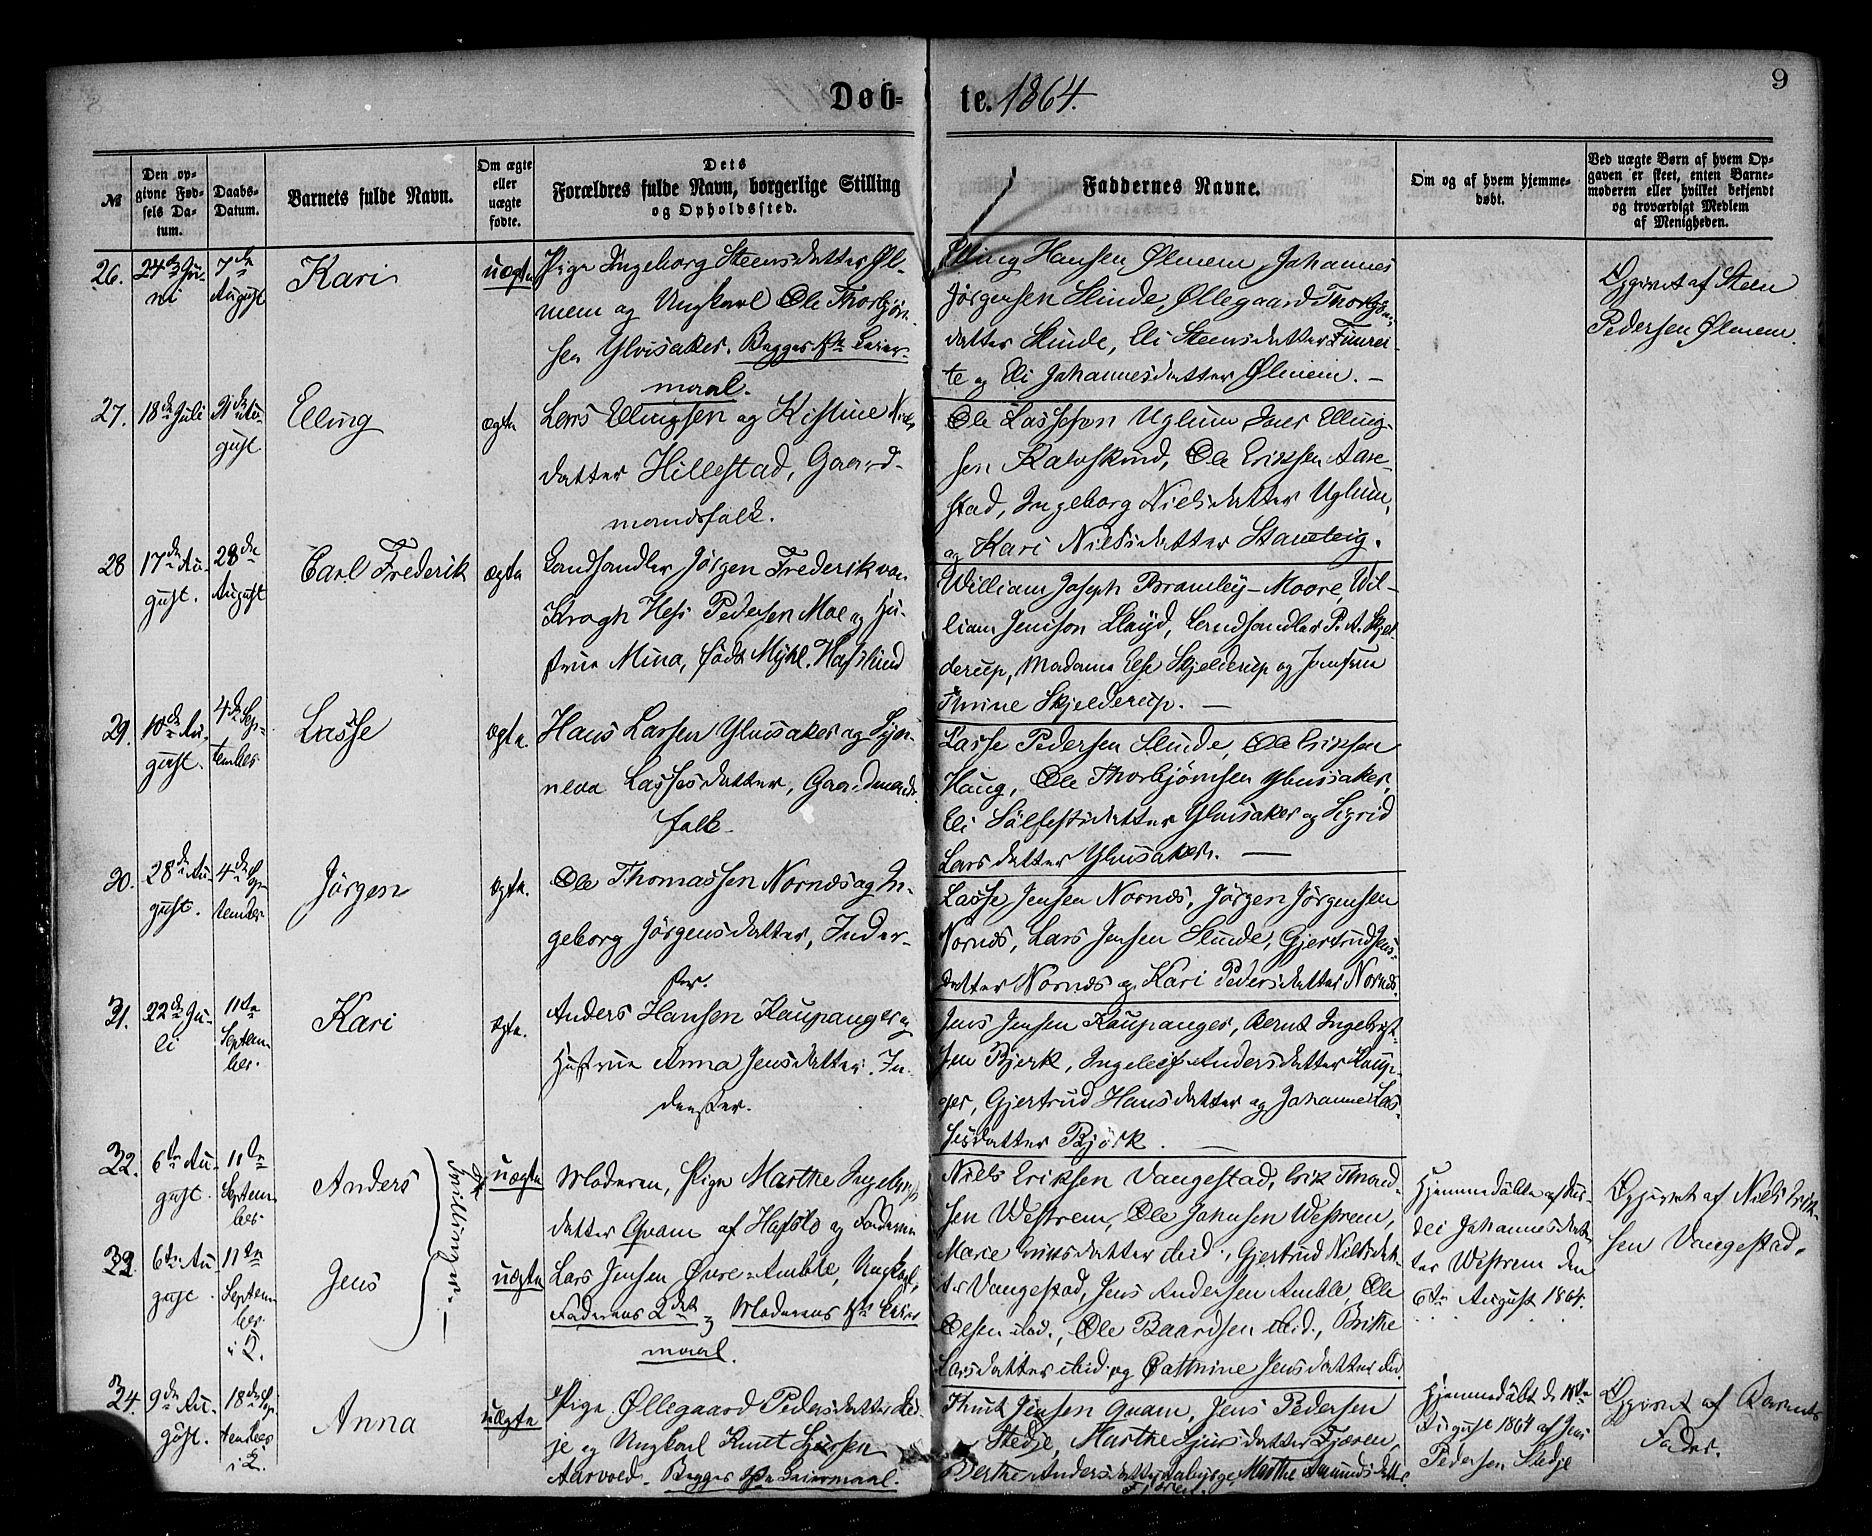 Døb- te. 1864.
9
№
Den op-
givne Fød-
sels Da-
tum.
Daabs-
Datum.
Barnets fulde Navn.
Om ægte
eller
uægte
fødte.
Dets
Forældres fulde Navn, borgerlige Stilling
og Opholdssted.
Faddernes Navne.
Om og af hvem hjemme-
døbt.
Ved uægte Børn af hvem Op-
gaven er skeet, enten Barne-
moderen eller hvilket bekjendt
og troværdigt Medlem
af Menigheden.
26.
24de Ju-
ni
7de
August
Kari
uægte
Pige Ingeborg Steensdatter Øl-
mem og Ungkarl Ole Thorbjørn-
sen Ylvisaker. Begges 1ste Leier-
maal.
Elling Hansen Ølmem, Johannes
Jørgensen Slinde, Øllegaard Thorbjørns-
datter Slinde, Eli Steensdatter Fimrei-
te og Eli Johannesdatter Ølmem. –
Opgivet af Steen
Pedersen Ølmem.
27.
18de Juli
21de Au-
gust.
Elling
ægte
Lars Ellingsen og Kistine Niels
datter Hillestad, Gaard-
mandsfolk.
Ole Lassesøn Uglum Jens Elling-
sen Kalvskind, Ole Eriksen Aare-
stad, Ingeborg Nielsdatter Uglum,
og Kari Nielsdatter Stamteig.
28
17de Au-
gust.
28de
August
Carl Frederik
ægte
Landhandler Jørgen Frederik von
Krogh Hess Pedersen Moe og Hu-
strue Mina, født Myhl. Hafslund
William Joseph Bramley-Moore, Wil-
liam Jemson Lloyd, Landhandler P. A. Skjel-
derup, Madame Else Skjelderup og Jomfrue
Thrine Skjelderup. –
29.
10de Au-
gust.
4de Sep-
tember
Lasse
ægte.
Hans Larsen Ylvisaker og Synneva
Lassesdatter, Gaardmands-
folk.
Lasse Pedersen Slinde, Ole Eriksen
Haug, Ole Thorbjørnsen Ylvisaker,
Eli Sølfestsdatter Ylvisaker og Sigrid
Larsdatter Ylvisaker. –
30.
28de Au-
gust.
4de Sep-
tember
Jørgen
ægte.
Ole Thomassen Nornæs og In-
geborg Jørgensdatter, Inder-
ster.
Lasse Jensen Nornæs, Jørgen Jørgensen
Nornæs, Lars Jensen Slinde, Gjertrud Jens-
datter Nornæs og Kari Pedersdatter Nornæs.
31.
22de Ju-
li
11te
Septem-
ber.
Kari
ægte.
Anders Hansen Kaupanger og
Hustrue Anna Jensdatter. In-
derster.
Jens Jensen Kaupanger, Bernt Ingebrigt-
sen Bjerk, Ingeleif Andersdatter Kaupan-
ger, Gjertrud Hansdatter og Johanne Las-
sesdatter Bjørk. –
32.
6te Au-
gust.
11te
Septem-
ber.
Anders
Tvillinger.
uægte
Moderen, Pige Marthe Ingebrigts
datter Qvam af Hafslo og Faderen
Niels Eriksen Vangestad, Erik Thrond-
sen Westrem, Ole Johnsen Westrem,
Marie Eriksdatter ibid., Gjertrud Nilsdat-
Hjemmedøbte af Gur-
dei Johannesdat-
ter Westrem den
6te August 1864.
Opgivet af Niels Erik-
sen Vangestad.
33.
6te Au-
gust.
11te
Septem-
ber
i Q.
Jens
uægte
Lars Jensen Øvre-Amble, Ungkarl,
Faderens 2det og Moderens 1ste Leier
maal.
ter Vangestad, Jens Andersen Amble, Ole
Olsen ibid., Ole Baardsen ibid., Brithe
Larsdatter ibid. og Cathrine Jensdatter ibid.
34.
9de Au-
gust.
18de Sep-
tember
i Q.
Anna
uægte
Pige Øllegaard Pedersdatter Sted-
je og Ungkarl Knut Sjursen
Aarvold. Begges 1ste Leiermaal.
Knut Jensen Qvam, Jens Pedersen
Stedje, Marthe Sjursdatter Fjæren,
Berthe Andersdatter, Marthe Amundsdatter
Fjæren.
Hjemmedøbt d. 10de
August 1864 af Jens
Pedersen Stedje
Opgivet af Barnets
Fader.